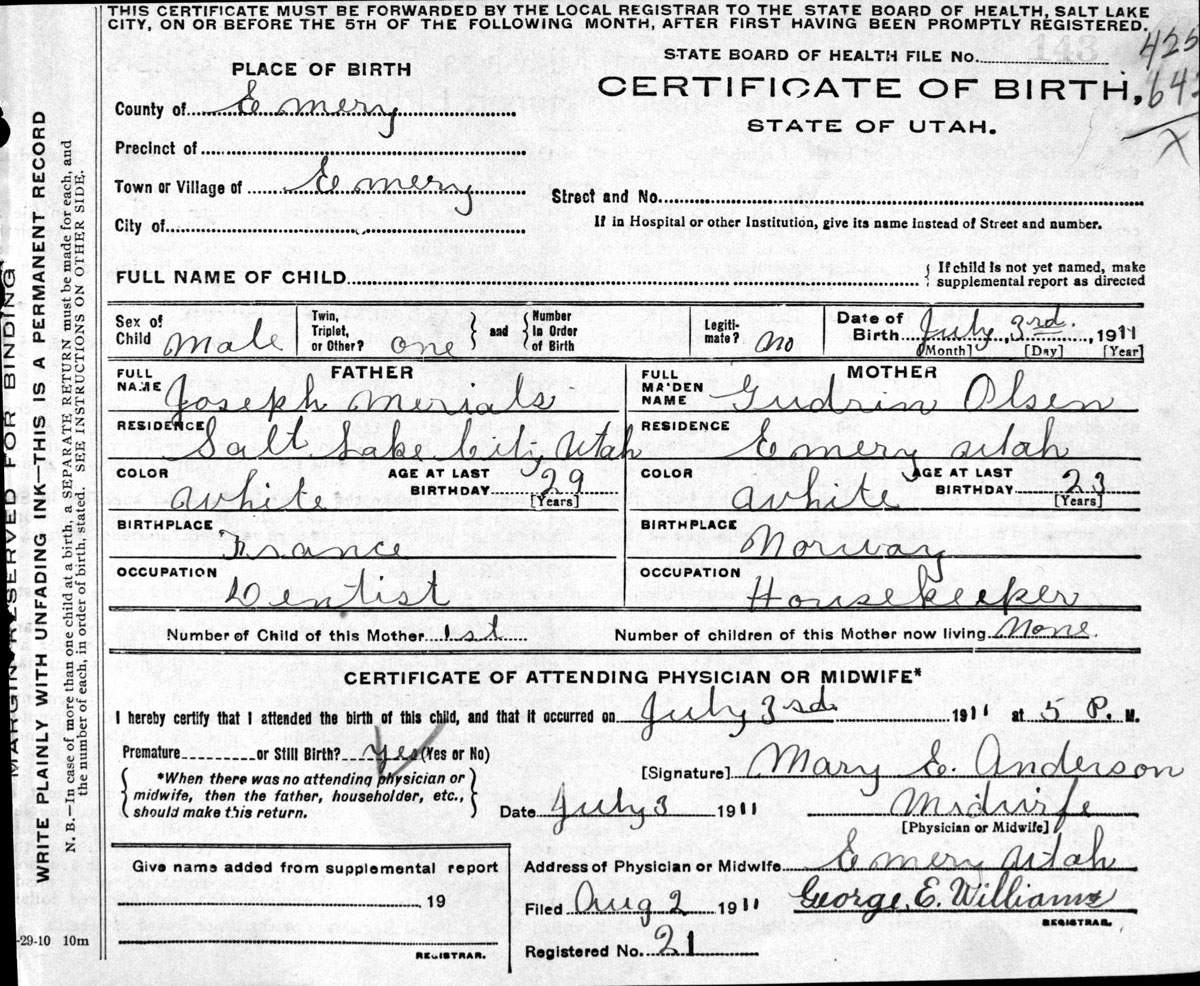 THIS CERTIFICATE MUST BE FORWARDED BY THE LOCAL REGISTRAR TO THE STATE BOARD OF HEALTH, SALT LAKE
CITY, ON OR BEFORE THE 5TH OF THE FOLLOWING MONTH, AFTER FIRST HAVING BEEN PROMPTLY REGISTERED.
MARGIN RESERVED FOR BINDING
WRITE PLAINLY WITH UNFADING INK—THIS IS A PERMANENT RECORD
N. B.—In case of more than one child at a birth, a SEPARATE RETURN must be made for each, and
the number of each, in order of birth stated. SEE INSTRUCTIONS ON OTHER SIDE.
STATE BOARD OF HEALTH FILE No.
143
CERTIFICATE OF BIRTH,
STATE OF UTAH.
PLACE OF BIRTH
County of Emery
Precinct of
Town or Village of Emery
Street and No.
City of
If in Hospital or other Institution, give its name instead of Street and number.
FULL NAME OF CHILD
{ If child is not yet named, make
supplemental report as directed
Sex of Child Male
Twin, Triplet, or Other? one } and { Number In Order of Birth
Legiti-mate? No
Date of Birth July 3rd, 1911
[Month] [Day] [Year]
FATHER
FULL NAME Joseph Merials
RESIDENCE Salt Lake City Utah
COLOR White AGE AT LAST BIRTHDAY 29 [Years]
BIRTHPLACE France
OCCUPATION Dentist
MOTHER
FULL MAIDEN NAME Gudrin Olsen
RESIDENCE Emery Utah
COLOR White AGE AT LAST BIRTHDAY 23 [Years]
BIRTHPLACE Norway
OCCUPATION Housekeeker
Number of Child of this Mother 1st Number of children of this Mother now living None.
CERTIFICATE OF ATTENDING PHYSICIAN OR MIDWIFE*
I hereby certify that I attended the birth of this child, and that it occurred on July 3rd. 1911 at 5 P. M.
Premature or Still Birth? yes (Yes or No)
{ *When there was no attending physician or
midwife, then the father, householder, etc.,
should make this return. }
[Signature] Mary E. Anderson
Date July 3 1911 Midwife
[Physician or Midwife]
Give name added from supplemental report
19
REGISTRAR.
Address of Physician or Midwife Emery Utah
Filed Aug 2 1911 George, E. Williams
REGISTRAR.
Registered No. 21
-29-10 10m